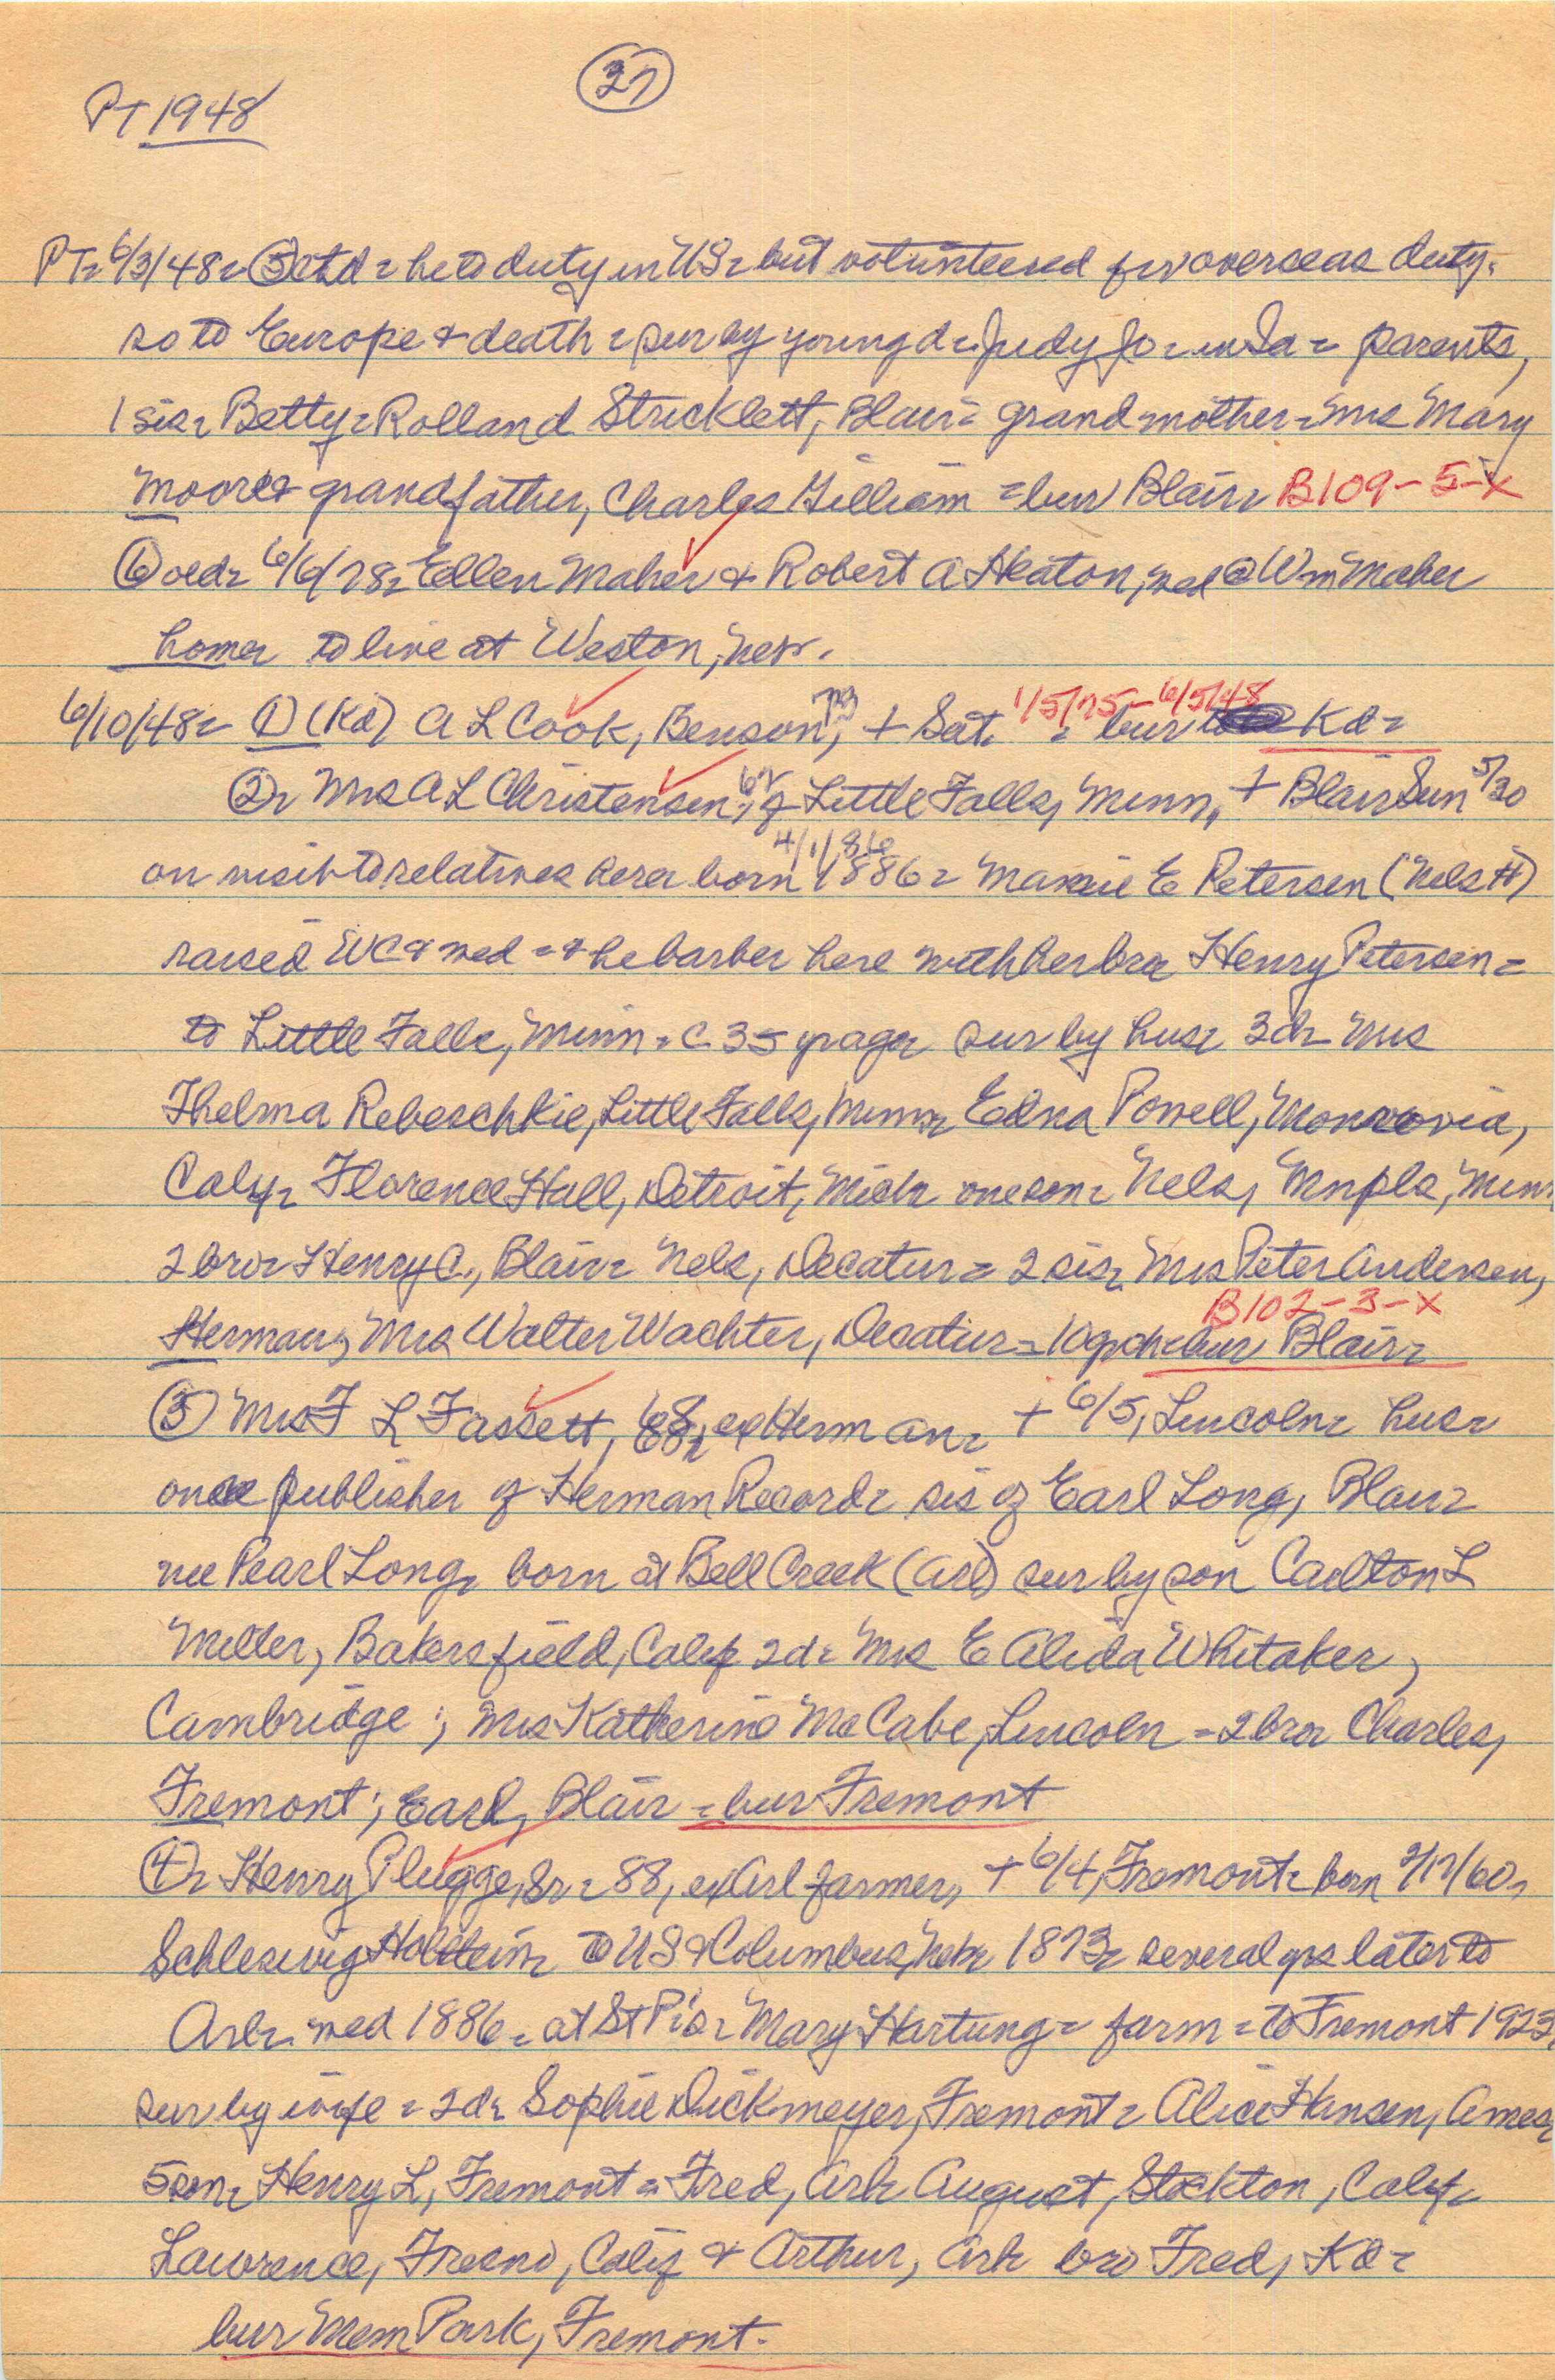 27
PT 1948
PT= 6/3/48= (5) ctd = he to duty in US = but volunteered for overseas duty.
so to Europe & death = sur by young d = Judy Jo = in Ia = parents,
1 sis = Betty = Rolland Stricklett, Blair = grandmother = Mrs Mary
Moore & grandfather, Charles Gilliam = bur Blair = B109-5-X
(6) wed = 6/6/28 = Ellen Maher & Robert A Heaton, wed @ Wm Maher
home = to live at Weston, Nebr.
6/10/48 = (1) (Kd) A L Cook, Benson, 73, + Sat. 1/5/75 - 6/5/48 = bur Kd =
(2) = Mrs A L Christensen, 62, of Little Falls, Minn, + Blair Sun 5/30
on visit to relatives here = born 4/1/86 1886 = Mamie E Petersen (Nels H)
raised WC & wed = & he barber here with her bro = Henry Petersen =
to Little Falls, Minn = c 35 yr ago = sur by hus = 3 d = Mrs
Thelma Rebeschkie, Little Falls, Minn = Edna Powell, Monrovia,
Calif = Florence Hall, Detroit, Mich = one son = Nels, Mnpls, Minn
2 bro = Henry C., Blair = Nels, Decatur = 2 sis = Mrs Peter Andersen,
Herman, Mrs Walter Wachter, Decatur = 10 gr ch = bur Blair = B102-3-X
(3) Mrs F L Fassett, 68, ex Herman = + 6/5, Lincoln = hus =
once publisher of Herman Record = sis of Earl Long, Blair =
nee Pearl Long, born at Bell Creek (Arl) sur by son Carlton L
Miller, Bakersfield, Calif 2d = Mrs E Alida Whitaker,
Cambridge; Mrs Katherine McCabe, Lincoln = 2 bro = Charles,
Fremont; Earl, Blair = bur Fremont
(4) = Henry Plugge, Sr = 88, ex Arl farmer, + 6/4, Fremont = born 2/17/60,
Schleswig Holstein = to US & Columbus, Nebr 1873 = several yrs later to
Arl = wed 1886 = at St P's = Mary Hartung = farm = to Fremont 1923,
sur by wife = 2 d = Sophie Dickmeyer, Fremont = Alice Hansen, Ames,
5 son = Henry L, Fremont = Fred, Arl = August, Stockton, Calif =
Lawrence, Fresno, Calif & Arthur, Arl = bro Fred, Kd =
bur Mem Park, Fremont.